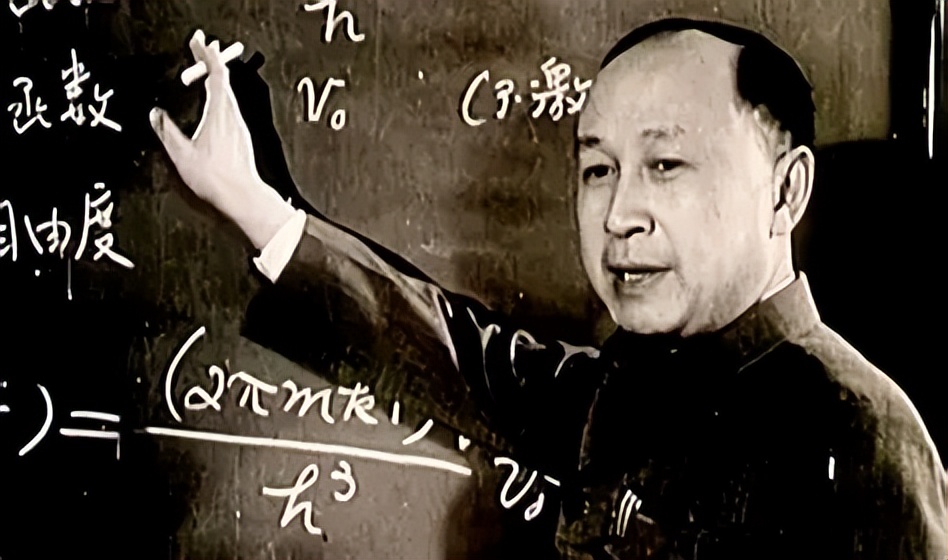 ħ
函数 V₀ (不激
自由度
) = (2πmk
h³ V₀